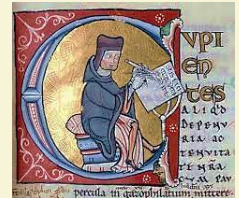 CVPI
EN
TES
ALIQD
DEPENV
RIA AC
TENVITA
TE NRA
CVM PAV
percula in gazophilatium mittere.